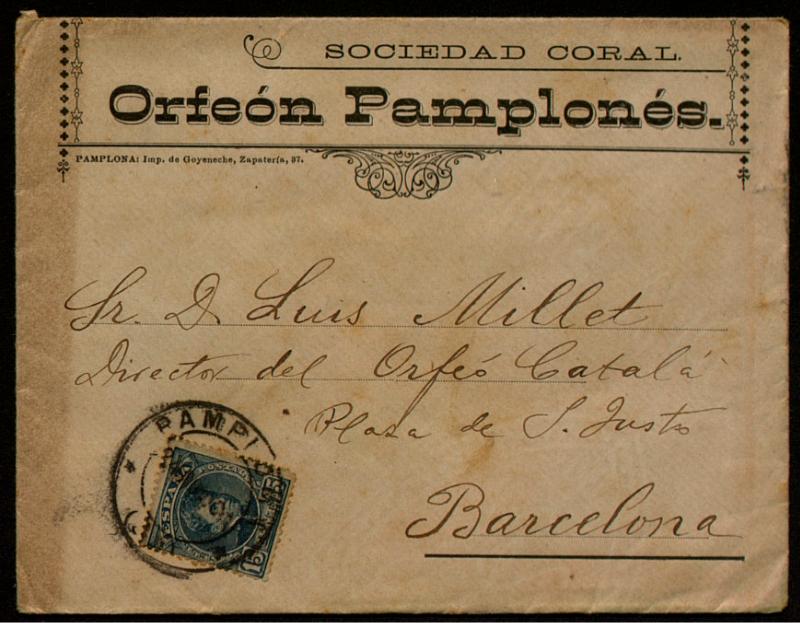 SOCIEDAD CORAL.
Orfeón Pamplonés.
PAMPLONA: Imp. de Goyeneche, Zapatería, 37.
Sr. D. Luis Millet
Director del Orfeó Catalá
Plasa de S. Justo
Barcelona
PAMPL
15
15